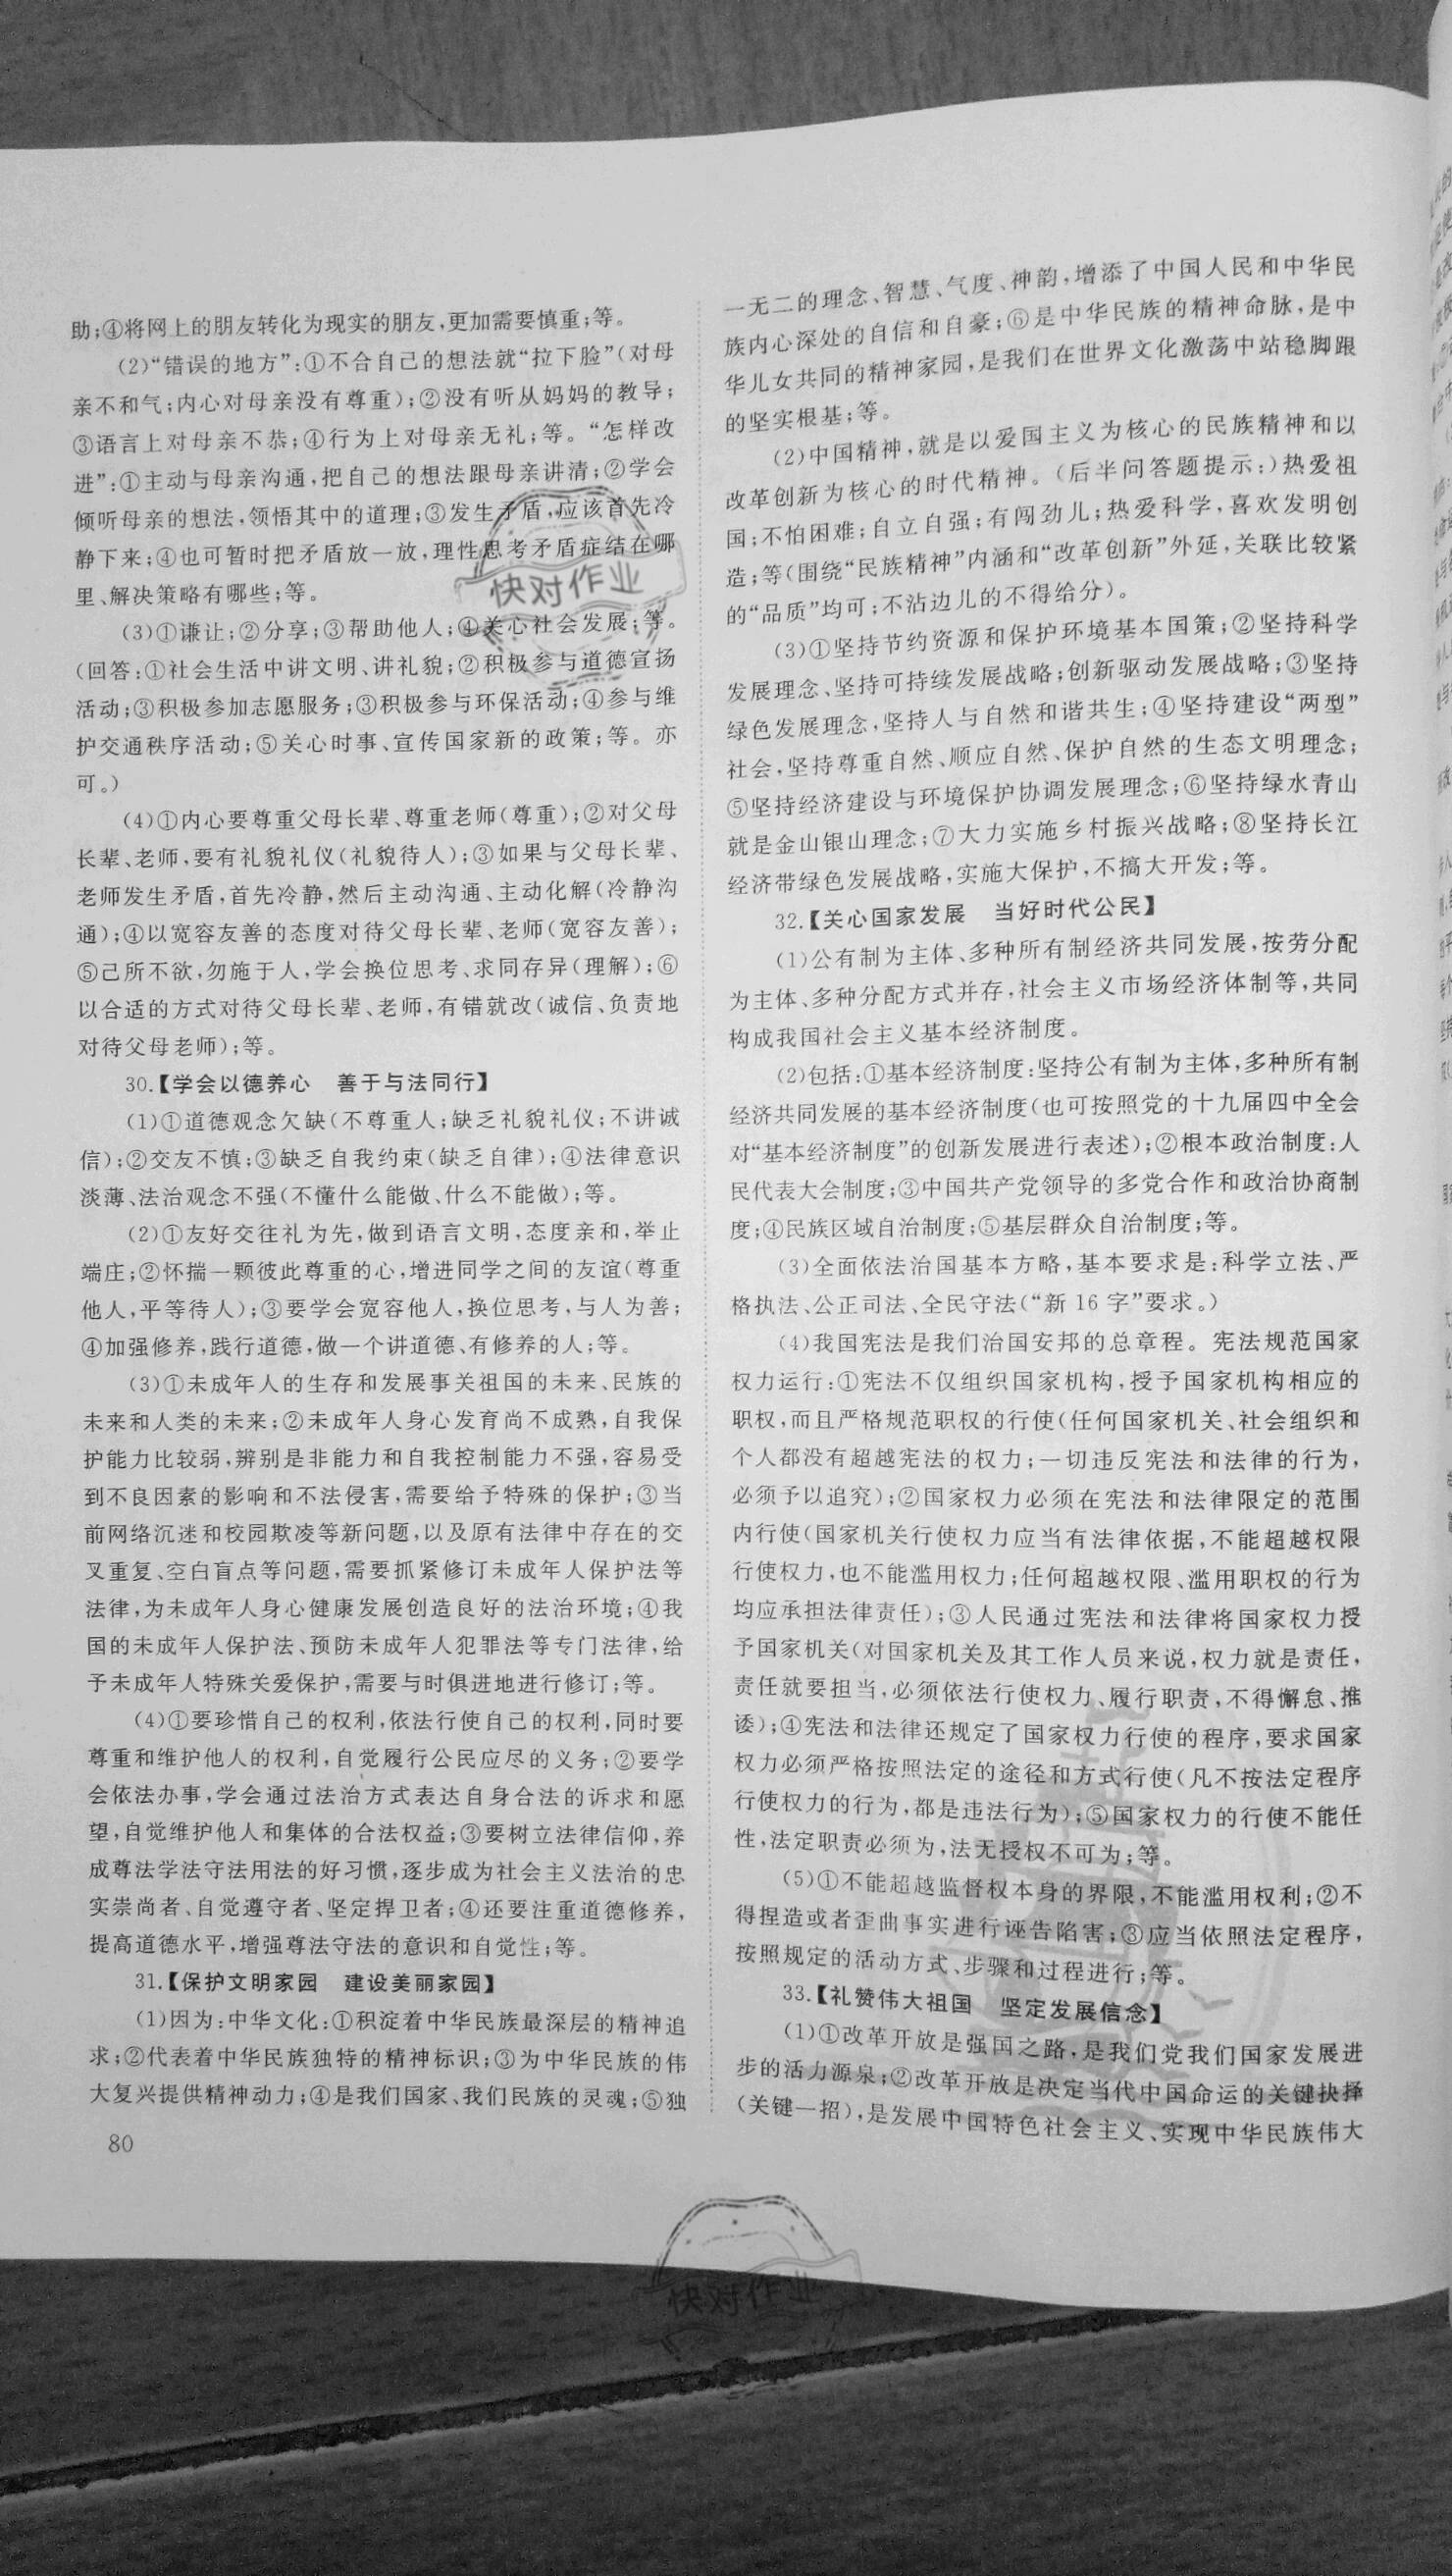 助;④将网上的朋友转化为现实的朋友,更加需要慎重;等。
(2)“错误的地方”:①不合自己的想法就“拉下脸”(对母
亲不和气;内心对母亲没有尊重);②没有听从妈妈的教导;
③语言上对母亲不恭;④行为上对母亲无礼;等。“怎样改
进”:①主动与母亲沟通,把自己的想法跟母亲讲清;②学会
倾听母亲的想法,领悟其中的道理;③发生矛盾,应该首先冷
静下来;④也可暂时把矛盾放一放,理性思考矛盾症结在哪
里、解决策略有哪些;等。
(3)①谦让;②分享;③帮助他人;④关心社会发展;等。
(回答:①社会生活中讲文明、讲礼貌;②积极参与道德宣扬
活动;③积极参加志愿服务;③积极参与环保活动;④参与维
护交通秩序活动;⑤关心时事、宣传国家新的政策;等。亦
可。)
(4)①内心要尊重父母长辈、尊重老师(尊重);②对父母
长辈、老师,要有礼貌礼仪(礼貌待人);③如果与父母长辈、
老师发生矛盾,首先冷静,然后主动沟通、主动化解(冷静沟
通);④以宽容友善的态度对待父母长辈、老师(宽容友善);
⑤己所不欲,勿施于人,学会换位思考、求同存异(理解);⑥
以合适的方式对待父母长辈、老师,有错就改(诚信、负责地
对待父母老师);等。
30.【学会以德养心　善于与法同行】
(1)①道德观念欠缺(不尊重人;缺乏礼貌礼仪;不讲诚
信);②交友不慎;③缺乏自我约束(缺乏自律);④法律意识
淡薄、法治观念不强(不懂什么能做、什么不能做);等。
(2)①友好交往礼为先,做到语言文明,态度亲和,举止
端庄;②怀揣一颗彼此尊重的心,增进同学之间的友谊(尊重
他人,平等待人);③要学会宽容他人,换位思考,与人为善;
④加强修养,践行道德,做一个讲道德、有修养的人;等。
(3)①未成年人的生存和发展事关祖国的未来、民族的
未来和人类的未来;②未成年人身心发育尚不成熟,自我保
护能力比较弱,辨别是非能力和自我控制能力不强,容易受
到不良因素的影响和不法侵害,需要给予特殊的保护;③当
前网络沉迷和校园欺凌等新问题,以及原有法律中存在的交
叉重复、空白盲点等问题,需要抓紧修订未成年人保护法等
法律,为未成年人身心健康发展创造良好的法治环境;④我
国的未成年人保护法、预防未成年人犯罪法等专门法律,给
予未成年人特殊关爱保护,需要与时俱进地进行修订;等。
(4)①要珍惜自己的权利,依法行使自己的权利,同时要
尊重和维护他人的权利,自觉履行公民应尽的义务;②要学
会依法办事,学会通过法治方式表达自身合法的诉求和愿
望,自觉维护他人和集体的合法权益;③要树立法律信仰,养
成尊法学法守法用法的好习惯,逐步成为社会主义法治的忠
实崇尚者、自觉遵守者、坚定捍卫者;④还要注重道德修养,
提高道德水平,增强尊法守法的意识和自觉性;等。
31.【保护文明家园　建设美丽家园】
(1)因为:中华文化:①积淀着中华民族最深层的精神追
求;②代表着中华民族独特的精神标识;③为中华民族的伟
大复兴提供精神动力;④是我们国家、我们民族的灵魂;⑤独
80
一无二的理念、智慧、气度、神韵,增添了中国人民和中华民
族内心深处的自信和自豪;⑥是中华民族的精神命脉,是中
华儿女共同的精神家园,是我们在世界文化激荡中站稳脚跟
的坚实根基;等。
(2)中国精神,就是以爱国主义为核心的民族精神和以
改革创新为核心的时代精神。(后半问答题提示:)热爱祖
国;不怕困难;自立自强;有闯劲儿;热爱科学,喜欢发明创
造;等(围绕“民族精神”内涵和“改革创新”外延,关联比较紧
的“品质”均可;不沾边儿的不得给分)。
(3)①坚持节约资源和保护环境基本国策;②坚持科学
发展理念、坚持可持续发展战略;创新驱动发展战略;③坚持
绿色发展理念,坚持人与自然和谐共生;④坚持建设“两型”
社会,坚持尊重自然、顺应自然、保护自然的生态文明理念;
⑤坚持经济建设与环境保护协调发展理念;⑥坚持绿水青山
就是金山银山理念;⑦大力实施乡村振兴战略;⑧坚持长江
经济带绿色发展战略,实施大保护,不搞大开发;等。
32.【关心国家发展　当好时代公民】
(1)公有制为主体、多种所有制经济共同发展,按劳分配
为主体、多种分配方式并存,社会主义市场经济体制等,共同
构成我国社会主义基本经济制度。
(2)包括:①基本经济制度:坚持公有制为主体,多种所有制
经济共同发展的基本经济制度(也可按照党的十九届四中全会
对“基本经济制度”的创新发展进行表述);②根本政治制度:人
民代表大会制度;③中国共产党领导的多党合作和政治协商制
度;④民族区域自治制度;⑤基层群众自治制度;等。
(3)全面依法治国基本方略,基本要求是:科学立法、严
格执法、公正司法、全民守法(“新16字”要求。)
(4)我国宪法是我们治国安邦的总章程。宪法规范国家
权力运行:①宪法不仅组织国家机构,授予国家机构相应的
职权,而且严格规范职权的行使(任何国家机关、社会组织和
个人都没有超越宪法的权力;一切违反宪法和法律的行为,
必须予以追究);②国家权力必须在宪法和法律限定的范围
内行使(国家机关行使权力应当有法律依据,不能超越权限
行使权力,也不能滥用权力;任何超越权限、滥用职权的行为
均应承担法律责任);③人民通过宪法和法律将国家权力授
予国家机关(对国家机关及其工作人员来说,权力就是责任,
责任就要担当,必须依法行使权力、履行职责,不得懈怠、推
诿);④宪法和法律还规定了国家权力行使的程序,要求国家
权力必须严格按照法定的途径和方式行使(凡不按法定程序
行使权力的行为,都是违法行为);⑤国家权力的行使不能任
性,法定职责必须为,法无授权不可为;等。
(5)①不能超越监督权本身的界限,不能滥用权利;②不
得捏造或者歪曲事实进行诬告陷害;③应当依照法定程序,
按照规定的活动方式、步骤和过程进行;等。
33.【礼赞伟大祖国　坚定发展信念】
(1)①改革开放是强国之路,是我们党我们国家发展进
步的活力源泉;②改革开放是决定当代中国命运的关键抉择
(关键一招),是发展中国特色社会主义、实现中华民族伟大
快对作业
快对作业